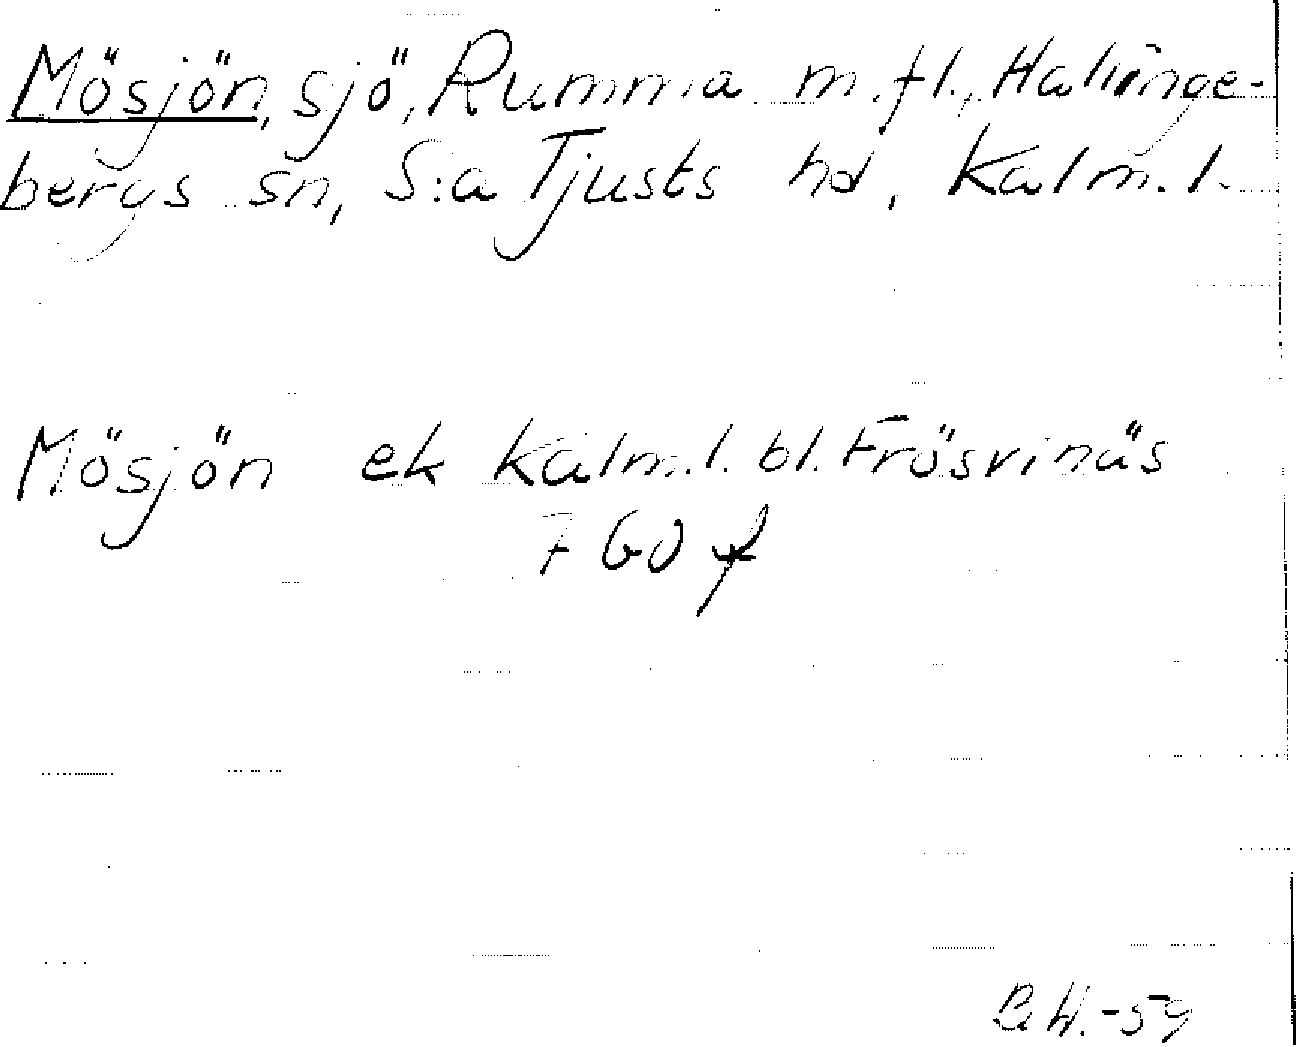 Mösjön, sjö, Rumma m.fl., Hallinge-
bergs sn, S:a Tjusts hd, Kalm.l.
Mösjön ek Kalm.l. bl. Frösvinäs
7 GV f
B.H.-59